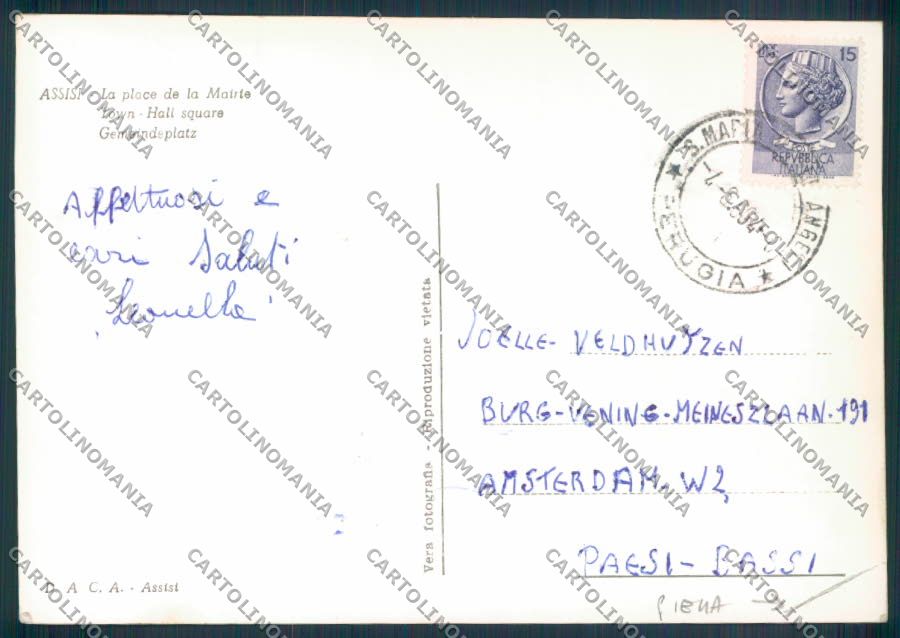 ASSISI - La place de la Mairie
Town - Hall square
Gemeindeplatz
Affettuosi e
cari saluti
Leonella
D. A C. A. - Assisi
Vera fotografia - Riproduzione vietata
15
POSTE
REPVBBLICA
ITALIANA
S. MARIA ANGELI
PERUGIA
JOELLE - VELDHUYZEN
BURG-VENING-MEINESZLAAN-191
AMSTERDAM. W2
PAESI - BASSI
PIEGA
CARTOLINOMANIA